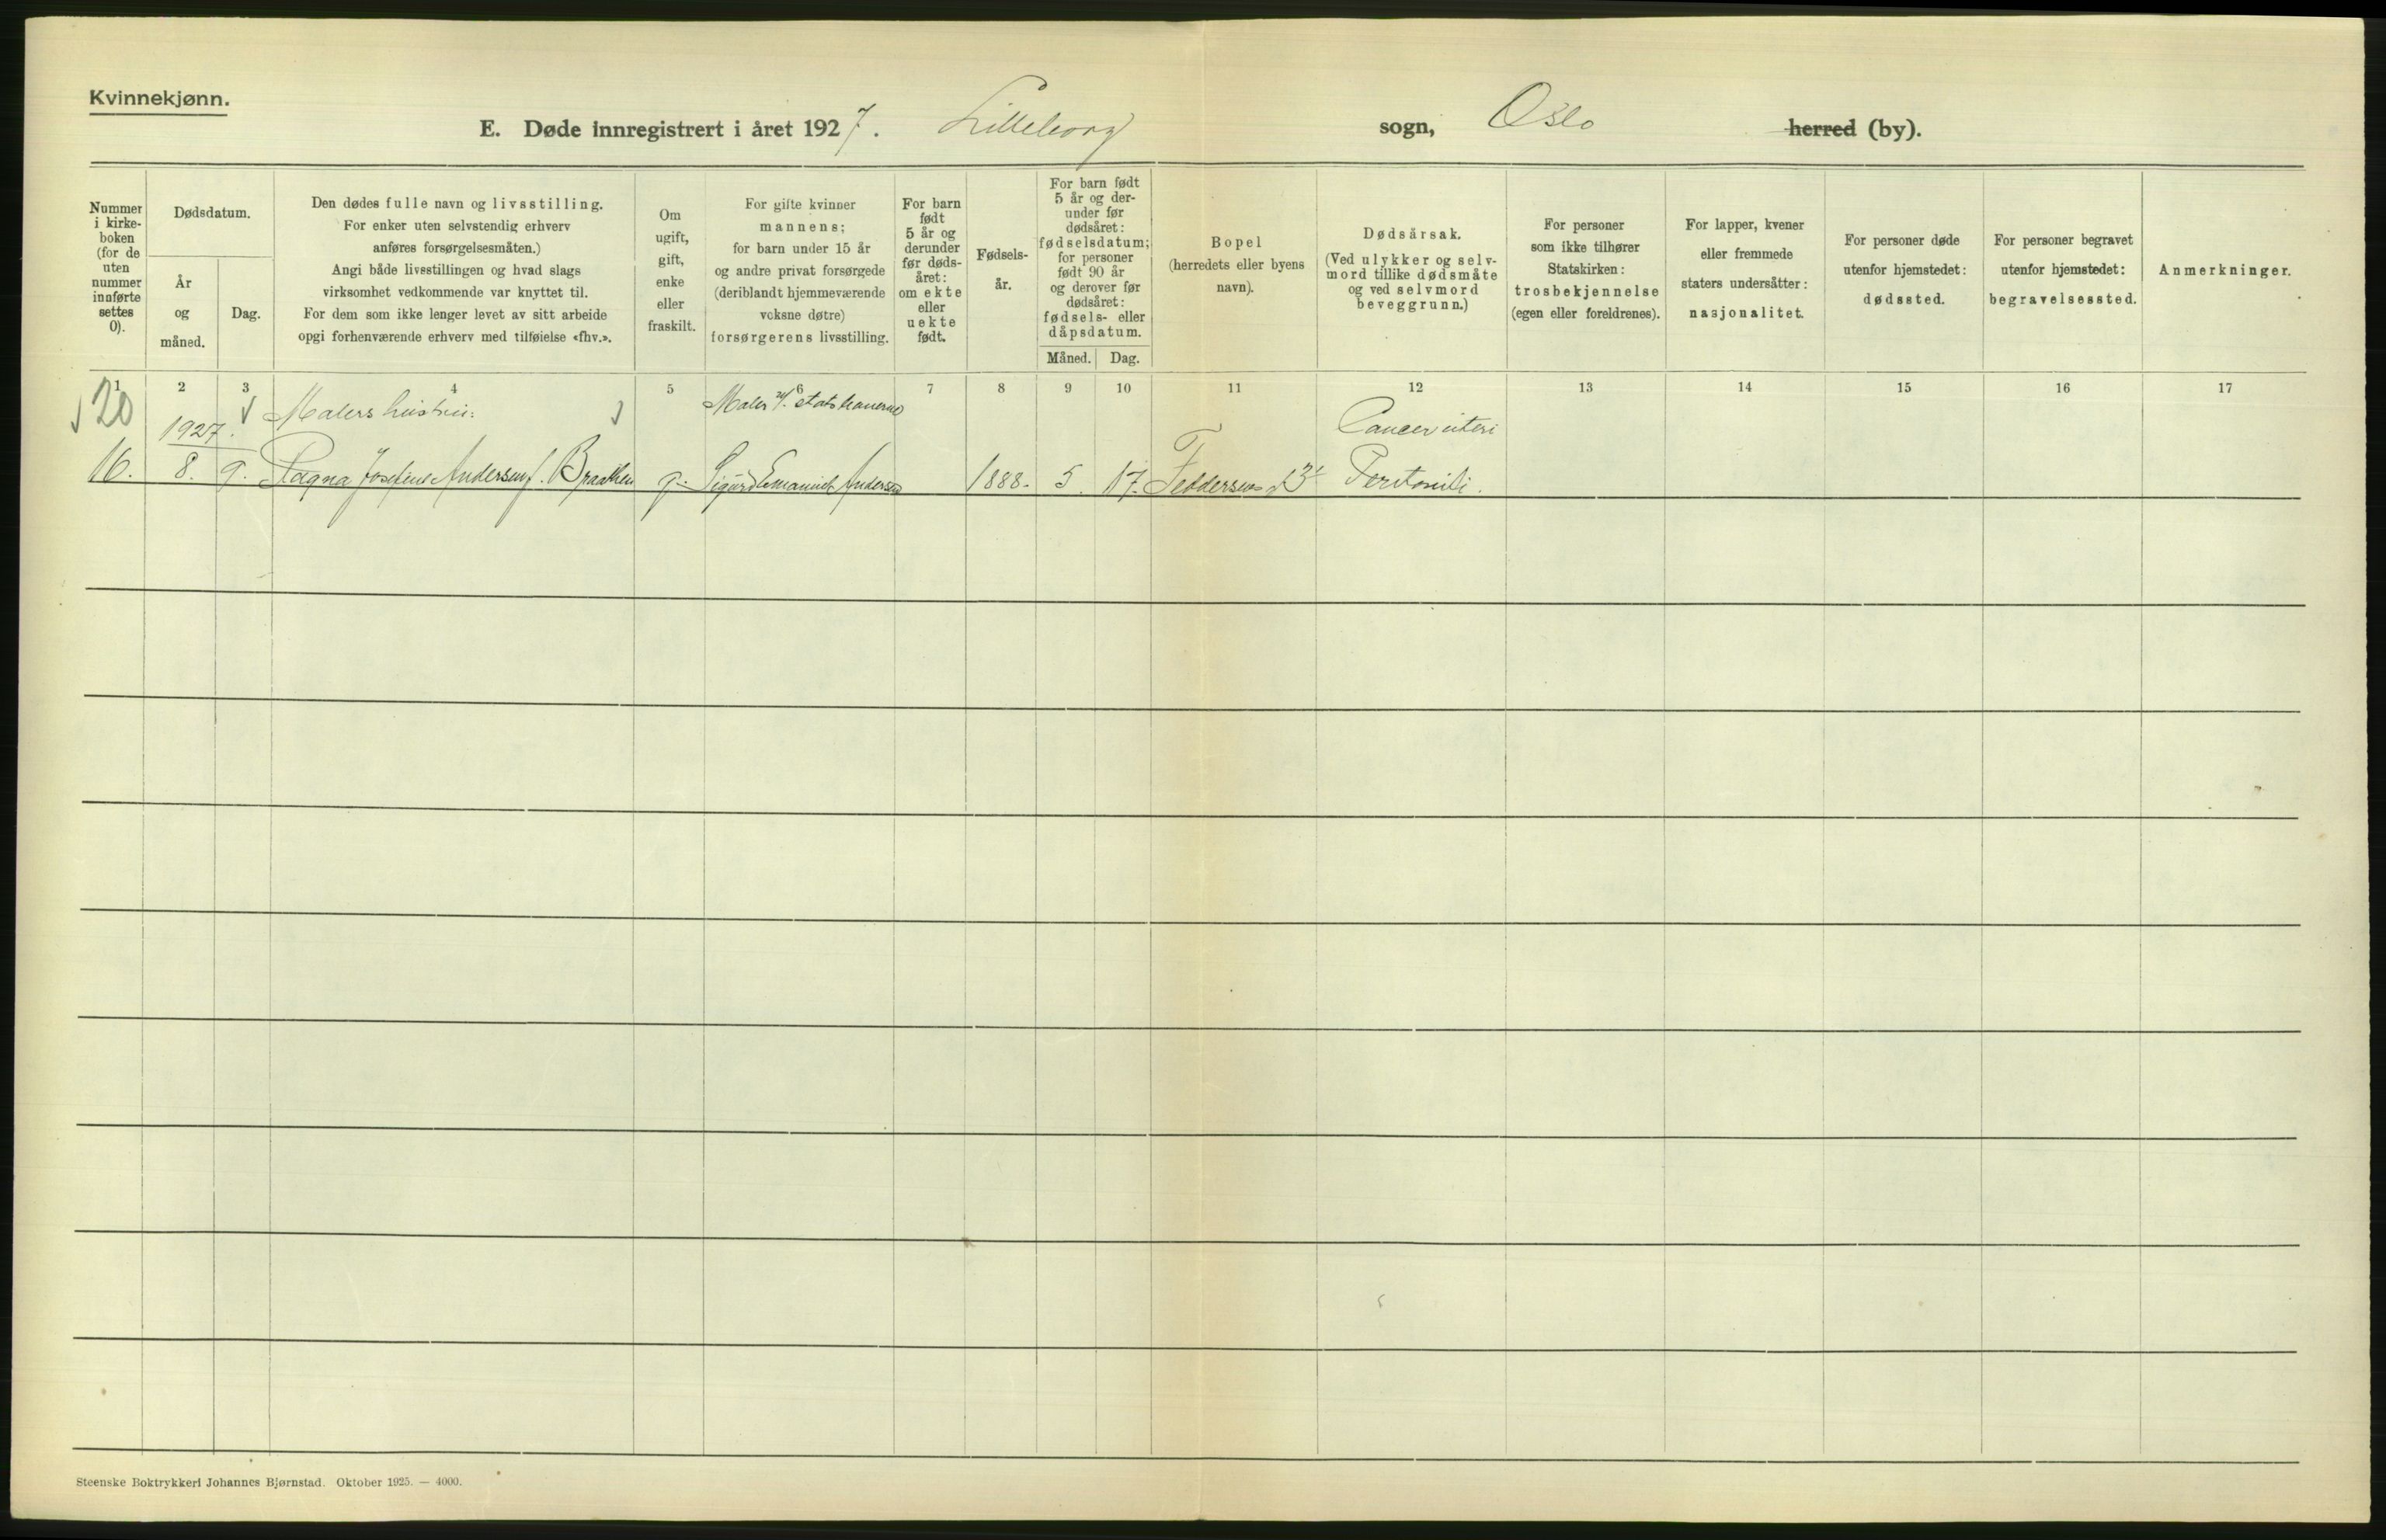 Kvinnekjønn.
E. Døde innregistrert i året 1927. Lilleborg sogn, Oslo herred (by).
Nummer i kirkeboken (for de uten nummer innførte settes 0).
Dødsdatum.
År og måned.
Dag.
Den dødes fulle navn og livsstilling.
For enker uten selvstendig erhverv
anføres forsørgelsesmåten.)
Angi både livsstillingen og hvad slags
virksomhet vedkommende var knyttet til.
For dem som ikke lenger levet av sitt arbeide
opgi forhenværende erhverv med tilføielse «fhv.».
Om ugift, gift, enke eller fraskilt.
For gifte kvinner
mannens;
for barn under 15 år
og andre privat forsørgede
(deriblandt hjemmeværende
voksne døtre)
forsørgerens livsstilling.
For barn født 5 år og derunder før dødsåret: om ekte eller uekte født.
Fødselsår.
For barn født 5 år og derunder før dødsåret: fødselsdatum; for personer født 90 år og derover før dødsåret: fødsels- eller dåpsdatum.
Måned. Dag.
Bopel
(herredets eller byens
navn).
Dødsårsak.
(Ved ulykker og selv-
mord tillike dødsmåte
og ved selvmord
beveggrunn.)
For personer
som ikke tilhører
Statskirken:
trosbekjennelse
(egen eller foreldrenes).
For lapper, kvener
eller fremmede
staters undersåtter:
nasjonalitet.
For personer døde
utenfor hjemstedet:
dødssted.
For personer begravet
utenfor hjemstedet:
begravelsessted.
Anmerkninger.
1 2 3 4 5 6 7 8 9 10 11 12 13 14 15 16 17
20 1927. Malers hustru: Maler v. Statsbanerne Cancer uteri
16. 8. 9. Ragna Josefine Andersen f. Braathen g. Sigurd Emanuel Andersen 1888. 5. 17. Feddersens Peritonit.
Steenske Boktrykkeri Johannes Bjørnstad. Oktober 1925. — 4000.